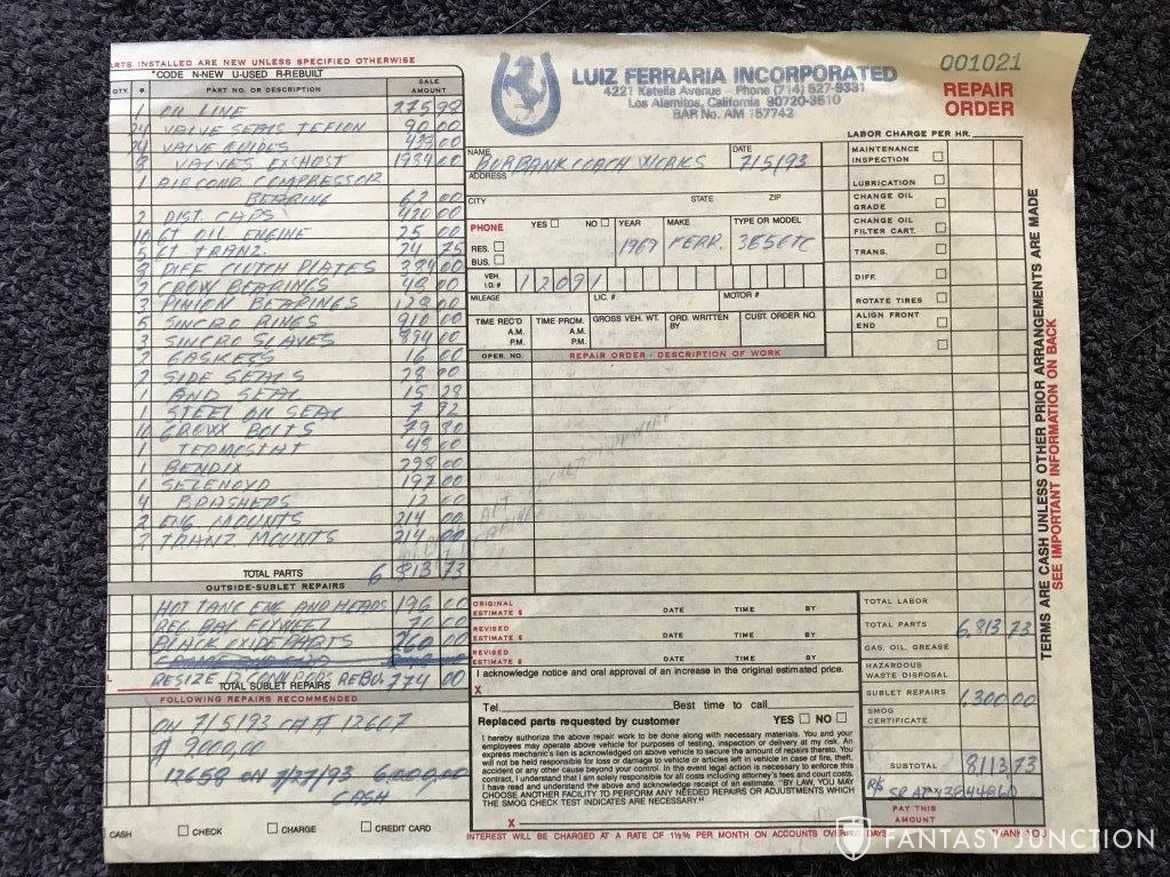 PARTS INSTALLED ARE NEW UNLESS SPECIFIED OTHERWISE
*CODE N-NEW U-USED R-REBUILT
QTY. # PART NO. OR DESCRIPTION SALE AMOUNT
1 OIL LINE 275.98
24 VALVE SEALS TEFLON 90.00
24 VALVE GUIDES
8 VALVES EXHOST
1 AIR COND COMPRESSOR
BEARING 62 00
2 DIST. CAPS 420.00
10 GT OIL ENGINE 25 00
5 GT TRANZ. 24 75
8 DIFF CLUTCH PLATES 384 00
2 CROW BEARINGS 48 00
3 PINION BEARINGS 128 00
6 SINCRO RINGS 910 00
3 SINCRO SLAVES 894 00
2 GASKETS 16 00
2 SIDE SEALS 28 00
1 AND SEAL 15 28
1 STEEL OIL SEAL 7 92
BOLTS 79 80
1 TERMOSTAT 48 00
1 BENDIX 298 00
1 SELENOYD 197 00
4 BRASHERS 12 00
2 ENG MOUNTS 214 00
2 TRANZ. MOUNTS 214 00
TOTAL PARTS 6 813 73
OUTSIDE-SUBLET REPAIRS
HOT TANC ENG AND HEADS 196 00
REC BAL FLYWEEL 70 00
BLACK EXIDE PARTS 260 00
RESIZE 12 CONN RODS REBU. 774 00
TOTAL SUBLET REPAIRS
FOLLOWING REPAIRS RECOMMENDED
ON 7/5/93 CH # 12607
# 9000,00
12658 ON 7/27/93 6.000,00
CASH
CASH CHECK CHARGE CREDIT CARD
LUIZ FERRARIA INCORPORATED
4221 Katella Avenue - Phone (714) 827-9331
Los Alamitos, California 90720-3510
BAR No. AM 157742
001021
REPAIR ORDER
LABOR CHARGE PER HR.
NAME BURBANK COACH WORKS DATE 7/5/93
ADDRESS
CITY STATE ZIP
PHONE YES NO YEAR MAKE TYPE OR MODEL
RES.
BUS.
1967 FERR. 365GTC
VEH. I.D. # 12091
MILEAGE LIC. #. MOTOR #
TIME REC'D A.M. P.M. TIME PROM. A.M. P.M. GROSS VEH. WT. ORD. WRITTEN BY CUST. ORDER NO.
OPER. NO. REPAIR ORDER - DESCRIPTION OF WORK
MAINTENANCE INSPECTION
LUBRICATION
CHANGE OIL GRADE
CHANGE OIL FILTER CART.
TRANS.
DIFF.
ROTATE TIRES
ALIGN FRONT END
TERMS ARE CASH UNLESS OTHER PRIOR ARRANGEMENTS ARE MADE
SEE IMPORTANT INFORMATION ON BACK
ORIGINAL ESTIMATE $ DATE TIME BY
REVISED ESTIMATE $ DATE TIME BY
REVISED ESTIMATE $ DATE TIME BY
I acknowledge notice and oral approval of an increase in the original estimated price.
X
Tel. Best time to call
Replaced parts requested by customer YES NO
I hereby authorize the above repair work to be done along with necessary materials. You and your
employees may operate above vehicle for purposes of testing, inspection or delivery at my risk. An
express mechanic's lien is acknowledged on above vehicle to secure the amount of repairs thereto. You
will not be held responsible for loss or damage to vehicle or articles left in vehicle in case of fire, theft,
accident or any other cause beyond your control. In the event legal action is necessary to enforce this
contract, I understand that I am solely responsible for all costs including attorney's fees and court costs.
I have read and understand the above and acknowledge receipt of an estimate. "BY LAW, YOU MAY
CHOOSE ANOTHER FACILITY TO PERFORM ANY NEEDED REPAIRS OR ADJUSTMENTS WHICH
THE SMOG CHECK TEST INDICATES ARE NECESSARY."
X
INTEREST WILL BE CHARGED AT A RATE OF 1½% PER MONTH ON ACCOUNTS OVER DAYS THANK YOU
TOTAL LABOR
TOTAL PARTS 6,813 73
GAS, OIL, GREASE
HAZARDOUS WASTE DISPOSAL
SUBLET REPAIRS 1,300.00
SMOG CERTIFICATE
SUBTOTAL 8113 73
PAY THIS AMOUNT
FANTASY JUNCTION